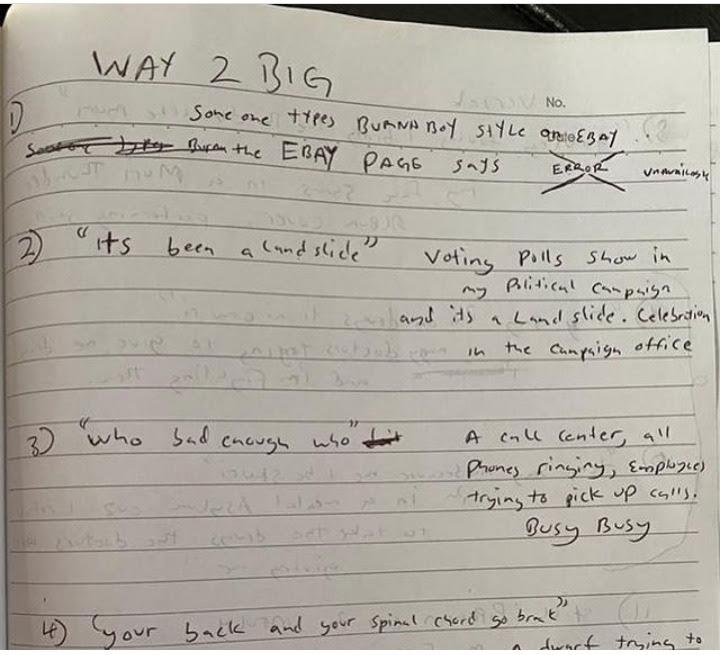 WAY 2 BIG
No.
1) Someone types BURNA BOY style on EBAY ..
But the EBAY PAGE says ERROR
2) "its been a landslide" Voting Polls show in
my Political Campaign
and its a Landslide. Celebration
in the campaign office
3) "who bad enough who" A call center, all
Phones ringing, Employees
trying to pick up calls.
Busy Busy
4) "your back and your spinal chord go break"
a dwarf trying to